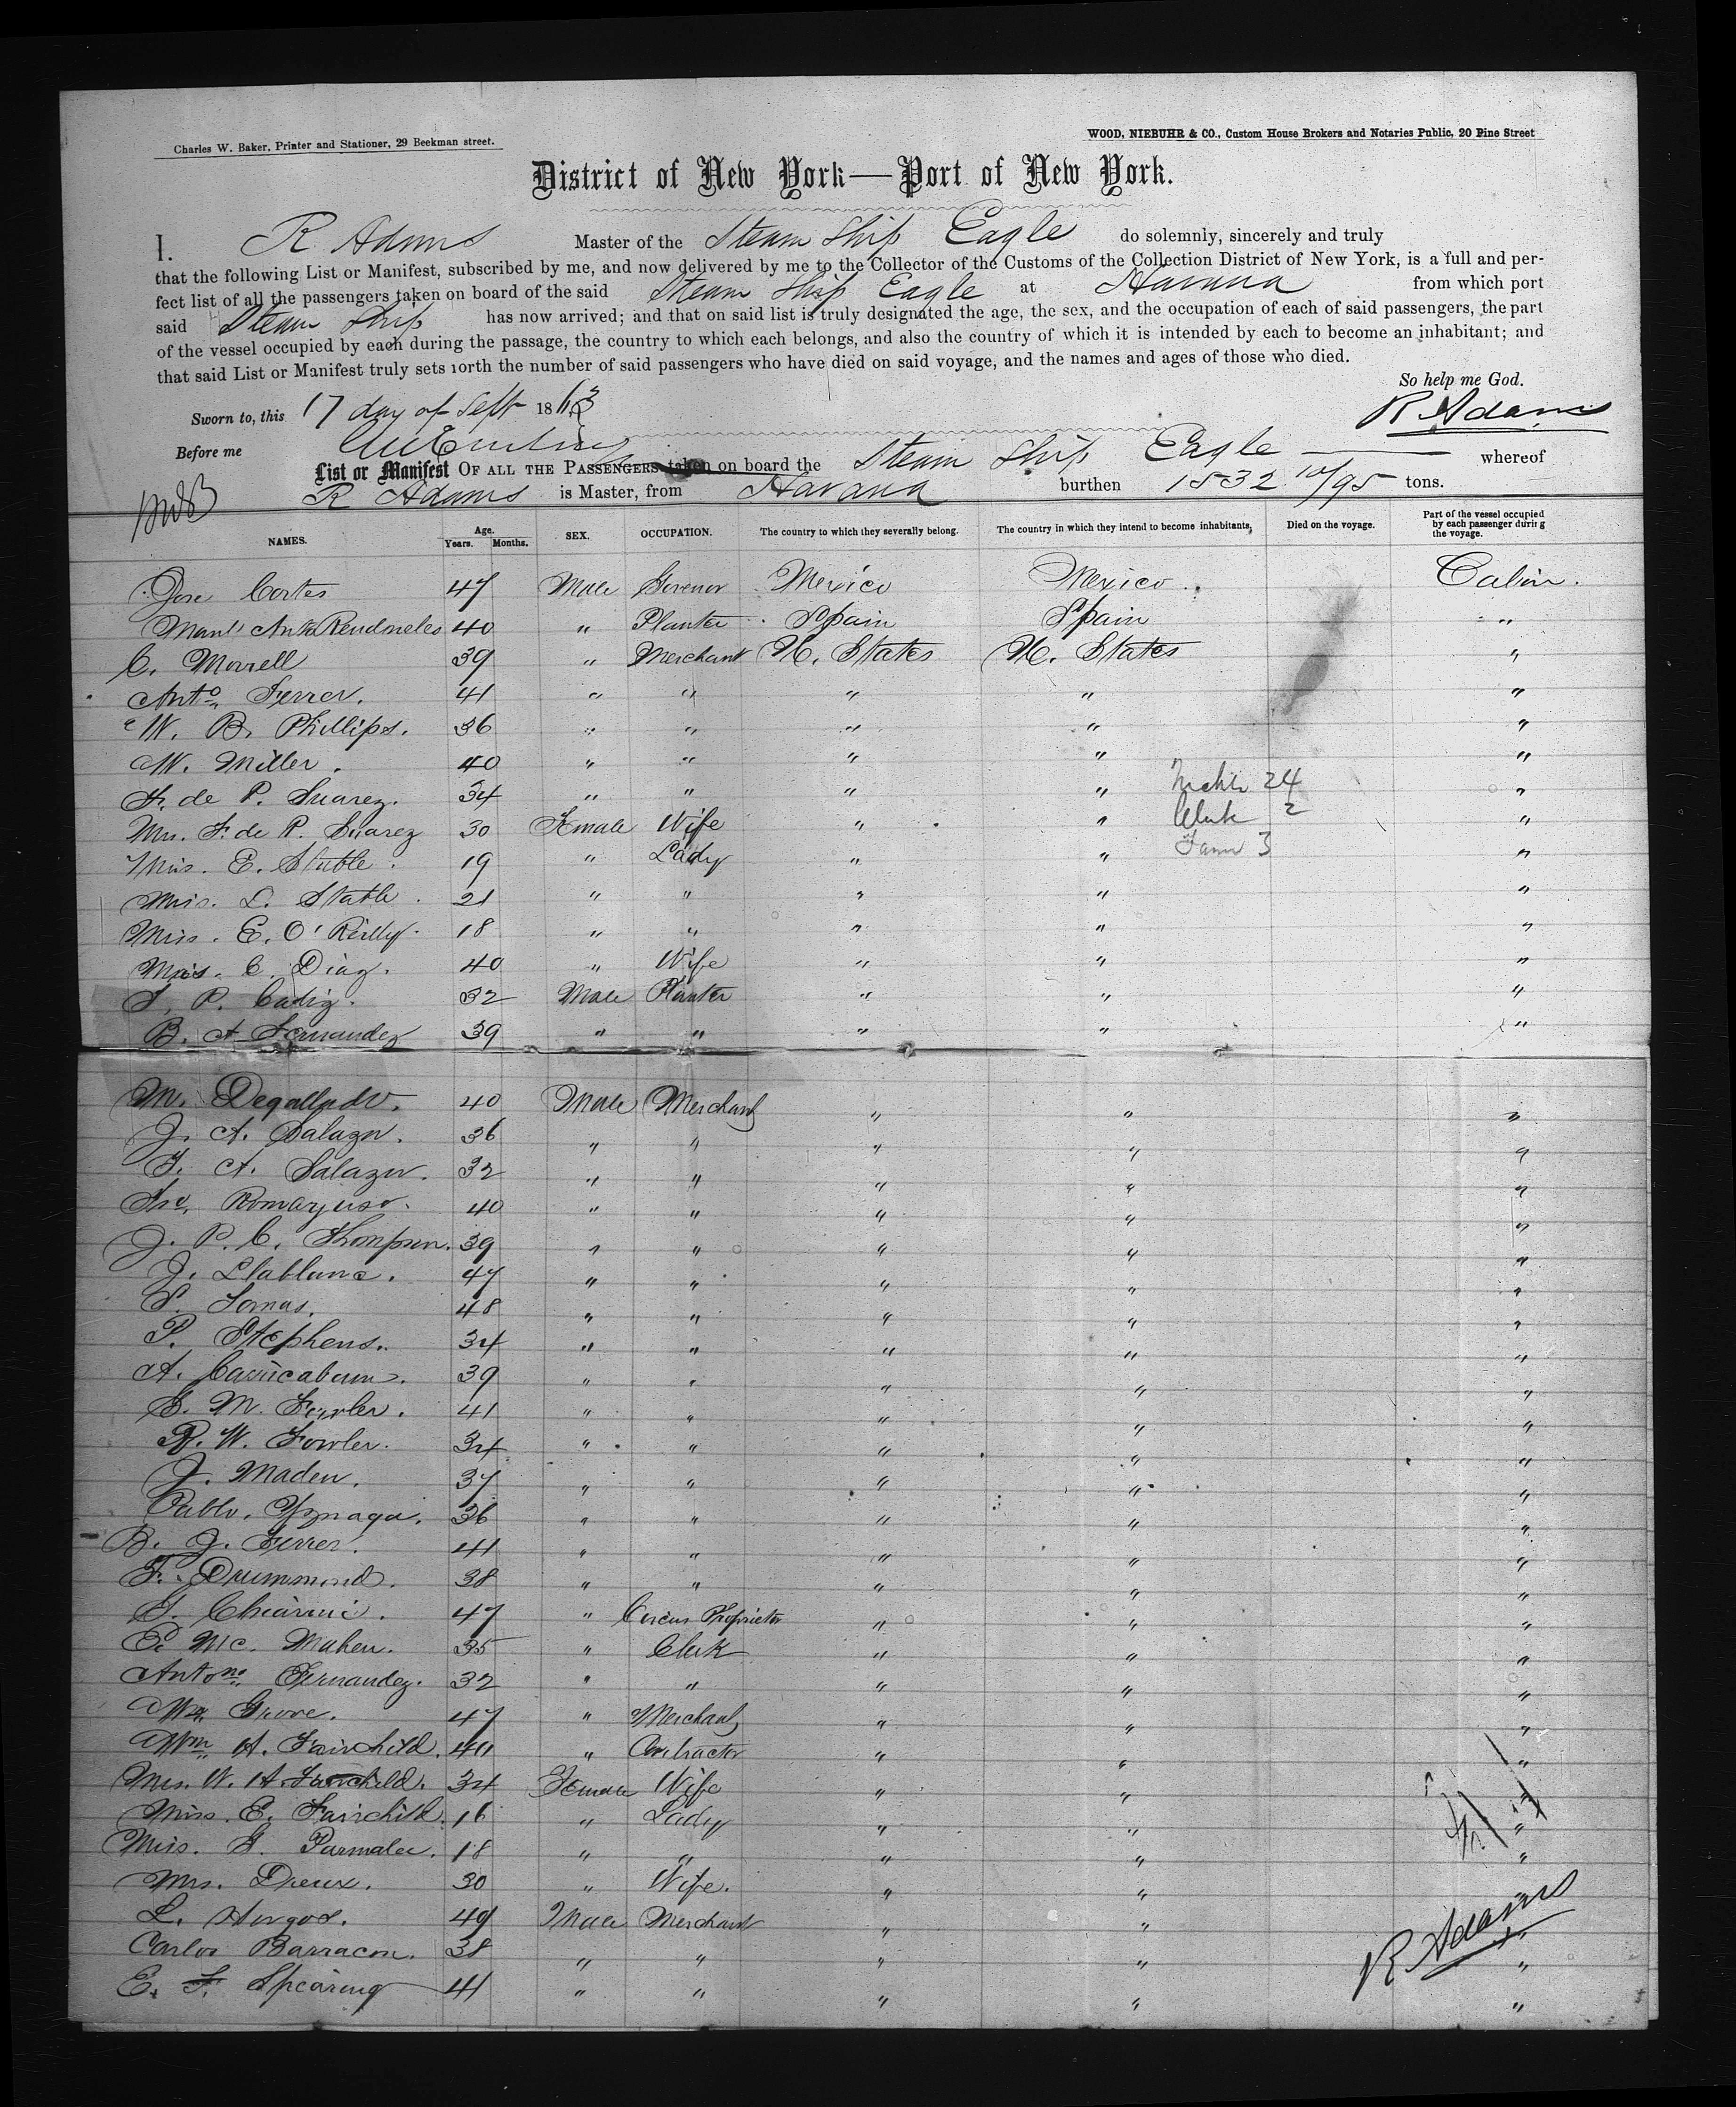 Charles W. Baker, Printer and Stationer, 29 Beekman street.
WOOD, NIEBUHR & CO., Custom House Brokers and Notaries Public, 20 Pine Street
District of New York—Port of New York.
I. R Adams Master of the Steam Ship Eagle do solemnly, sincerely and truly
that the following List or Manifest, subscribed by me, and now delivered by me to the Collector of the Customs of the Collection District of New York, is a full and per-
fect list of all the passengers taken on board of the said Steam Ship Eagle at Havana from which port
said Steam Ship has now arrived; and that on said list is truly designated the age, the sex, and the occupation of each of said passengers, the part
of the vessel occupied by each during the passage, the country to which each belongs, and also the country of which it is intended by each to become an inhabitant; and
that said List or Manifest truly sets forth the number of said passengers who have died on said voyage, and the names and ages of those who died.
So help me God.
Sworn to, this 17 day of Sept 1863
R Adams
Before me
List or Manifest OF ALL THE PASSENGERS taken on board the Steam Ship Eagle whereof
R Adams is Master, from Havana burthen 1532 10/95 tons.
NAMES. Age. Years. Months. SEX. OCCUPATION. The country to which they severally belong. The country in which they intend to become inhabitants, Died on the voyage. Part of the vessel occupied by each passenger during the voyage.
Jose Cortes 47 Male Govenor Mexico Mexico Cabin.
Manl Anto 40 " Planter Spain Spain "
C. Morrell 39 " Merchant U. States U. States "
Anto Ferrer. 41 " " " " "
W. B. Phillips. 36 " " " " "
W. Miller. 40 " " " " "
F. de P. Suarez. 34 " " " " "
24
Mrs. F. de P. Suarez 30 Female Wife " " "
Clerk 2
Miss. E. Stable. 19 " Lady " " "
3
Miss. L. Stable. 21 " " " " "
Miss. E. O'Reilly. 18 " " " " "
Mrs. C. Diaz. 40 " Wife " " "
J. P. Cadiz. 32 Male Planter " " "
B. A Fernandez 39 " " " " "
M. Degallado. 40 Male Merchant " " "
J. A. Salazar. 36 " " " " "
F. A. Salazar. 32 " " " " "
40 " " " " "
J. P. C. Thompson. 39 " " " " "
J. 47 " " " " "
48 " " " " "
P. Stephens. 34 " " " " "
A. 39 " " " " "
G. M. 41 " " " " "
R. W. Fowler. 34 " " " " "
J. Maden. 37 " " " " "
Pablo. Yznaga. 36 " " " " "
B. J. Ferrer. 41 " " " " "
F. Drummond. 38 " " " " "
G. Chiarini. 47 " Circus Proprietor " " "
P. Mc. Mahen. 35 " Clerk " " "
Antono Fernandez. 32 " " " " "
Wm Grove. 47 " Merchant " " "
Wm H. Fairchild. 40 " Contractor " " "
Mrs. W. H. Fairchild. 34 Female Wife " " "
Miss. E. Fairchild. 16 " Lady " " "
Miss. G. Parmalee. 18 " " " " "
Mrs. Dreux. 30 " Wife. " " "
L. 49 Male Merchant " " "
Carlos Barracon. 38 " " " " "
R Adams
E. F. Spearing 41 " " " " "